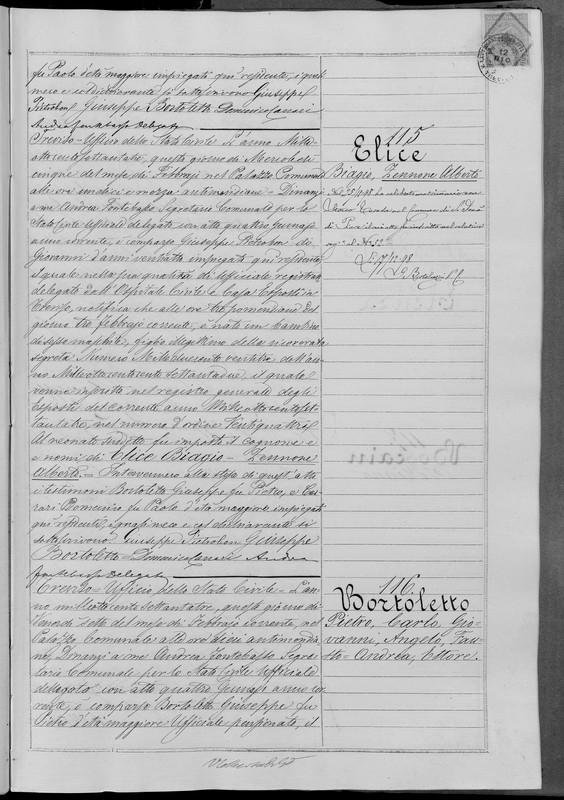 fu Paolo d'età maggiore impiegati qui residenti, i quali
meco e col dichiarante si sottoscrivono Giuseppe
Pietrobon Giuseppe Bortoletto Domenico Carrari
Andrea Fontebasso Delegato
Treviso = Ufficio dello Stato Civile = L'anno Mille
ottocento settantatre, questo giorno di Mercoledì
cinque del mese di Febbrajo nel Palazzo Comunale
alle ore undici e mezza antimeridiane = Dinanzi
a me Andrea Fontebasso Segretario Comunale per lo
Stato Civile Ufficiale delegato con atto quattro Gennajo
anno corrente, è comparso Giuseppe Pietrobon di
Giovanni d'anni ventratre impiegato qui residente
il quale nella sua qualità di ufficiale registrante
delegato dall'Ospitale Civile e Casa Esposti in
Treviso, notifica che alle ore tre pomeridiane del
giorno tre Febbrajo corrente, è nato un bambino
di sesso maschile, figlio illegittimo della ricoverata
segreta Numero Milleduecento ventitre dell'an
no Milleottocento settantadue, il quale
venne inscritto nel registro generale degli
Esposti del corrente anno Milleottocentoset
tantatre, nel numero d'ordine Ventiquattro
Al neonato suddetto fu imposto il cognome e
e nomi di Elice Biagio = Zennone
Alberto. = Intervennero alla stesa di quest'atto
i testimoni Bortoletto Giuseppe fu Pietro, e Car
rari Domenico fu Paolo d'età maggiore impiegati
qui residenti, i quali meco e col dichiarante si
sottoscrivono Giuseppe Pietrobon Giuseppe
Bortoletto = Domenico Carrari Andrea
Fontebasso Delegato
Treviso = Ufficio dello Stato Civile = L'an
no milleottocento settantatre, questo giorno di
Venerdì sette del mese di Febbrajo corrente, nel
Palazzo Comunale alle ore dieci antimeridia
ne, Dinanzi a me Andrea Fontebasso Segre
tario Comunale per lo Stato Civile Ufficiale
delegato con atto quattro Gennajo anno cor
rente, è comparso Bortoletto Giuseppe fu
Pietro d'età maggiore Ufficiale pensionato, il
115
Elice
Biagio, Zennone Alberto
116.
Bortoletto
Pietro, Carlo, Gio
vanni, Angelo, Fau
sto = Andrea, Ettore.